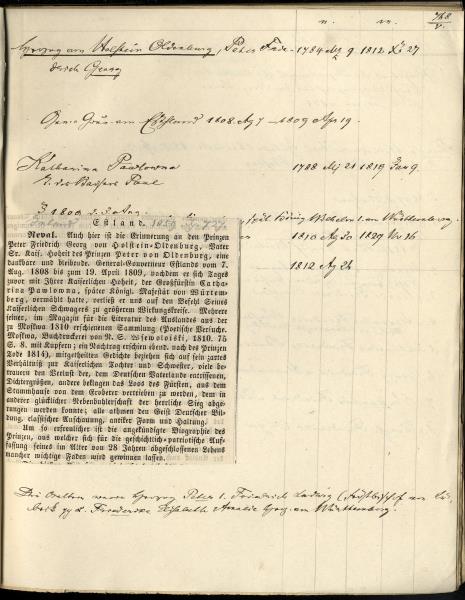 n. m. 768
Herzog von Holstein Oldenburg, Peter Frie- 1784 9 1812 27
derich Georg
Gen: Gouv. von Ehstland 1808 Ag 7 – 1809 Apr 19.
Katharina Pawlowna 1788 Mj 21 1819 Jan 9.
Paul
1809
Wilhelm I. von Württemberg.
1810 Ag 30 1829 Nv 16
1812 Ag 26
Estland. 1859
Reval. Auch hier ist die Erinnerung an den Prinzen
Peter Friedrich Georg von Holstein-Oldenburg, Vater
Sr. Kais. Hoheit des Prinzen Peter von Oldenburg, eine
dankbare und bleibende. General-Gouverneur Estlands vom 7.
Aug. 1808 bis zum 19. April 1809, nachdem er sich Tages
zuvor mit Ihrer Kaiserlichen Hoheit, der Großfürstin Catha-
rina Pawlowna, später Königl. Majestät von Würtem-
berg, vermählt hatte, verließ er uns auf den Befehl Seines
Kaiserlichen Schwagers zu größerem Wirkungskreise. Mehrere
seiner, im Magazin für die Literatur des Auslandes aus der
zu Moskwa 1810 erschienenen Sammlung (Poetische Versuche.
Moskwa, Buchdruckerei von N. S. Wsewoloiski, 1810. 75
S. 8. mit Kupfern; ein Nachtrag erschien ebend. nach des Prinzen
Tode 1814), mitgetheilten Gedichte beziehen sich auf sein zartes
Verhältniß zur Kaiserlichen Tochter und Schwester, viele be-
trauern den Verlust der, dem Deutschen Vaterlande entrissenen,
Dichtergrößen, andere beklagen das Loos des Fürsten, aus dem
Stammhause von dem Eroberer vertrieben zu werden, dem in
anderer glücklicher Nebenbuhlerschaft der herrliche Sieg abge-
rungen werden konnte; alle athmen den Geist Deutscher Bil-
dung, classischer Anschauung, antiker Form und Haltung.
Um so erfreulicher ist die angekündigte Biographie des
Prinzen, aus welcher sich für die geschichtlich-patriotische Auf-
fassung seines im Alter von 28 Jahren abgeschlossenen Lebens
mancher wichtige Faden wird gewinnen lassen.
Die Aeltern waren Herzog Peter I. Friedrich Ludwig (Fürstbischof von Lü-
beck u. Friederike Elisabeth Amalie Herz. von Württemberg.